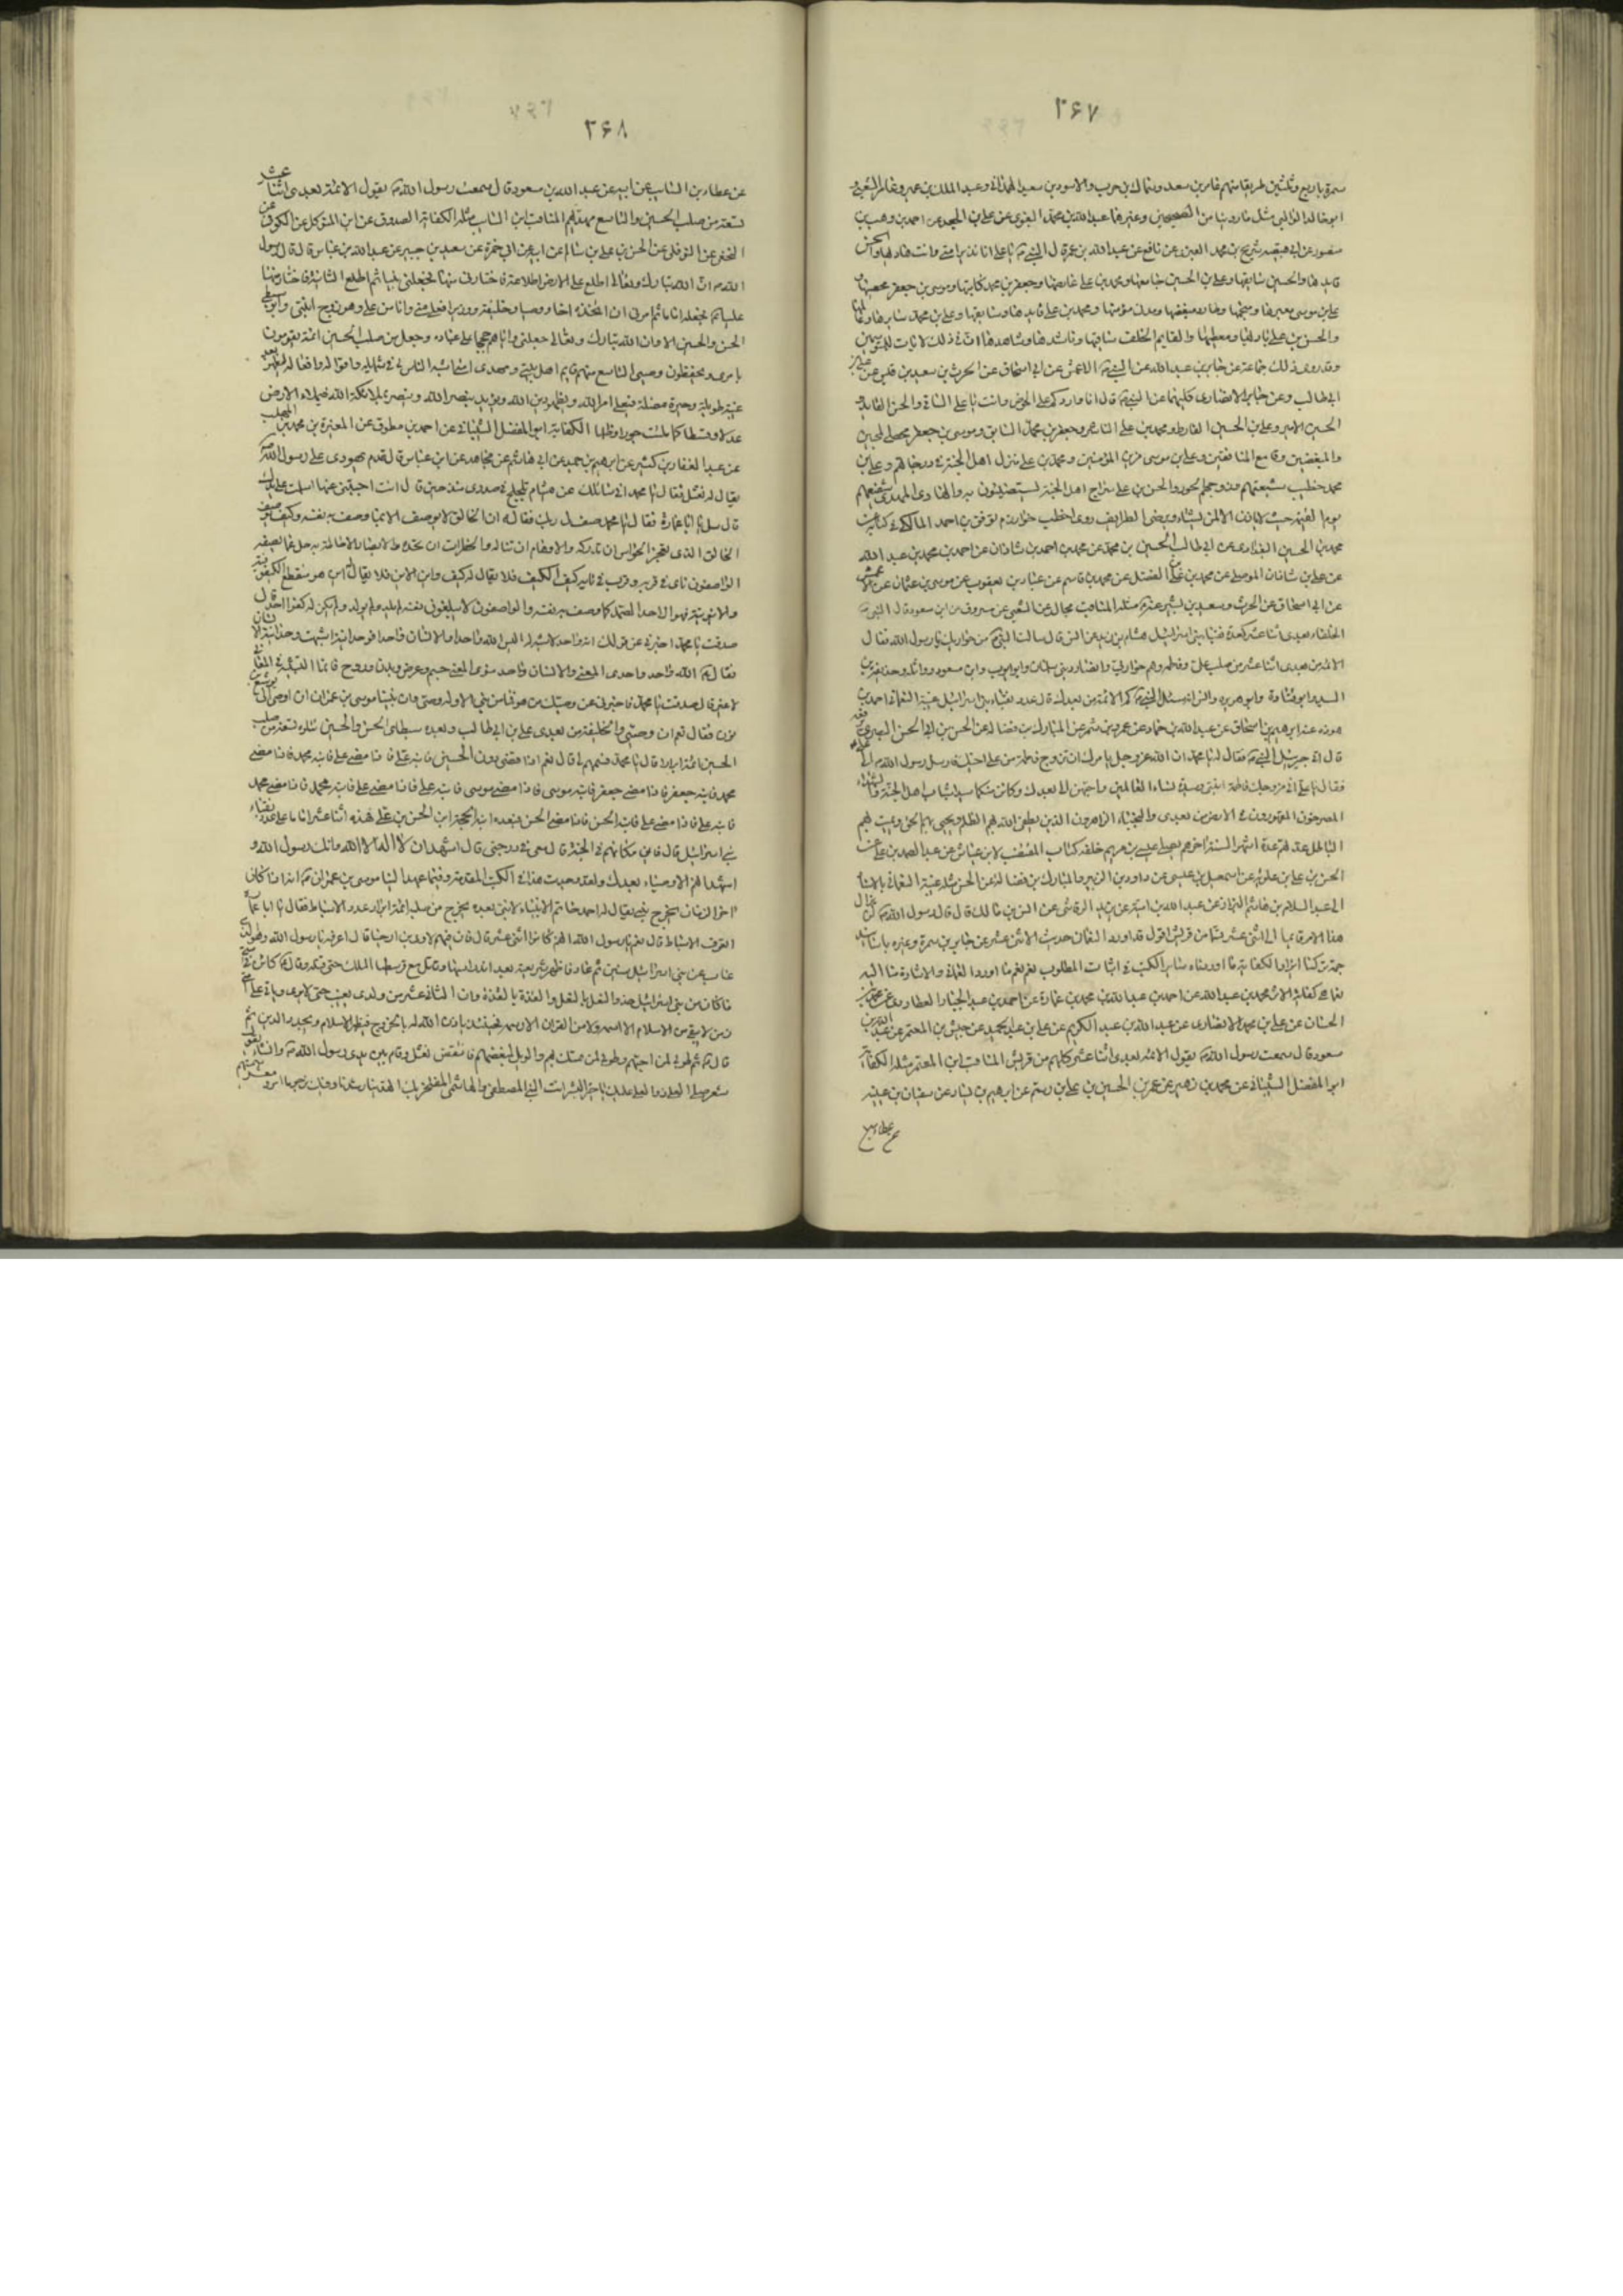 ٢۶٧
سمرة باربع وثلثين طريقا منهم عامر بن سعد وسماك بن حرب والاسود بن سعيد الهمداني وعبد الملك بن عمير وعامر الشعبي و
ابو خالد الوالبي مثل ما روينا من الصحيحين وغيرهما عبد الله بن محمد البغوي عن علي بن الجعد عن احمد بن وهب بن
منصور عن ابي قبيصه شريح بن محمد العنبري عن نافع عن عبد الله بن عمر قال النبي يا علي انا نذير امتي وانت هاديها والحسن
قايدها والحسين سايقها وعلي بن الحسين جامعها ومحمد بن علي عارفها وجعفر بن محمد كاتبها وموسى بن جعفر محصيها
علي بن موسى معبرها ومنجيها وطارد مبغضها ومدني مؤمنيها ومحمد بن علي قايدها وسايقها وعلي بن محمد سايرها وعالمها
والحسن بن علي ناديها ومعطيها والقايم الخلف ساقيها وناشدها وشاهدها ان في ذلك لايات للمتوسمين
وقد روى ذلك جماعة عن جابر بن عبد الله عن النبي الاعمش عن ابي اسحاق عن الحرث بن سعيد بن قيس عن علي بن
ابي طالب وعن جابر الانصاري كليهما عن النبي قال انا واردكم على الحوض وانت يا علي الساقي والحسن الذايد و
الحسين الامر وعلي بن الحسين الفارط ومحمد بن علي الناشر وجعفر بن محمد السايق وموسى بن جعفر محصي المحبين
والمبغضين وقامع المنافقين وعلي بن موسى مزين المؤمنين ومحمد بن علي منزل اهل الجنة في درجاتهم وعلي بن
محمد خطيب شيعتهم ومزوجهم الحور والحسن بن علي سراج اهل الجنة يستضيئون به والهادي المهدي شفيعهم
يوم القيمة حيث لا ياذن الا لمن يشاء ويرضى الطرايف روى اخطب خوارزم موفق بن احمد المالكي في كتابه عن
محمد بن الحسين البغدادي عن ابي طالب الحسين بن محمد عن محمد بن احمد بن شاذان عن احمد بن محمد بن عبد الله
عن علي بن شاذان الموصلي عن محمد بن علي الفضل عن محمد بن قاسم عن عباد بن يعقوب عن موسى بن عثمان عن الاعمش
عن ابي اسحاق عن الحرث وسعيد بن بشير عنه مثله المناقب مجالد عن الشعبي عن مسروق عن ابن مسعود قال النبي
الخلفاء بعدي اثنا عشر كعدة نقباء بني اسرائيل هشام بن زيد عن انس قال سالنا النبي من حواريك يا رسول الله فقال
الائمة من بعدي اثنا عشر من صلب علي وفاطمة وهم حواريي وانصار ديني سلمان وابو ايوب وابن مسعود وواثله وحذيفة بن
اسيد وابو قتادة وابو هريرة وانس انه سئل النبي كم الائمة من بعدك قال عدد نقباء بني اسرائيل غيبة النعماني احمد بن
هوذه عن ابراهيم بن اسحاق عن عبد الله بن حماد عن عمرو بن شمر عن المبارك بن فضاله عن الحسن بن ابي الحسن البصري يرفعه
قال اتى جبرئيل النبي فقال يا محمد ان الله عز وجل يامرك ان تزوج فاطمة من علي اخيك فارسل رسول الله الى علي
فقال يا علي اني مزوجك فاطمة ابنتي وسيدة نساء العالمين واحبهن الي بعدك وكائن منكما سيدا شباب اهل الجنة والشهداء
المضرجون المقهورون في الارض من بعدي والنجباء الزاهرون الذين يطفئ الله بهم الظلم ويحيي بهم الحق ويميت بهم
الباطل عدتهم عدة اشهر السنة اخرهم يصلي عيسى بن مريم خلفه كتاب المقتضب لابن عياش عن عبد الصمد بن علي عن
الحسن بن علي بن علويه عن اسمعيل بن عيسى عن داود بن الزبير والمبارك بن فضاله عن الحسن مثله غيبة النعماني بالاسناد
الى عبد السلام بن هاشم البزاز عن عبد الله بن امية عن يزيد الرقاشي عن انس بن مالك قال قال رسول الله لن يزال
هذا الامر قائما الى اثنى عشر قيما من قريش اقول قد اورد النعماني حديث الاثنى عشر عن جابر بن سمرة وغيره باسانيد
جمة تركنا ايرادها لكفاية ما اوردناه من ساير الكتب في اثبات المطلوب نعم نعم ما اوردوا لفائدة والاشارة منا اليه
كفاية الاثر محمد بن عبد الله عن احمد بن عبد الله بن محمد بن عمارة عن احمد بن عبد الجبار العطاردي عن محمد بن
الحسان عن علي بن محمد الانصاري عن عبد الله بن عبد الكريم عن علي بن عبد الحميد عن حبيش بن المعتمر عن عبد الله بن
مسعود قال سمعت رسول الله يقول الائمة بعدي اثنا عشر كلهم من قريش المناقب ابن المعتمر مثله الكفاية
ابو المفضل الشيباني عن محمد بن زهير عن عمر بن الحسين بن علي بن رستم عن ابراهيم بن يسار عن سفيان بن عيينه
عن عطا بن
٢۶٨
عن عطاء بن السايب عن ابيه عن عبد الله بن مسعود قال سمعت رسول الله يقول الائمة بعدي اثنا عشر
تسعة من صلب الحسين والتاسع مهديهم المناقب ابن السايب مثله الكفاية الصدوق عن ابن المتوكل عن الكوفي عن
النخعي عن النوفلي عن الحسن بن علي بن سالم عن ابيه عن ابي حمزة عن سعيد بن جبير عن عبد الله بن عباس قال قال رسول
الله ان الله تبارك وتعالى اطلع على الارض اطلاعة فاختارني منها فجعلني نبيا ثم اطلع الثانية فاختار منها
عليا ثم فجعله اماما ثم امرني ان اتخذه اخا ووصيا وخليفة ووزيرا فعلي مني وانا من علي وهو زوج ابنتي وابو سبطي
الحسن والحسين الا وان الله تبارك وتعالى جعلني واياهم حججا على عباده وجعل من صلب الحسين ائمة يقومون
بامري ويحفظون وصيتي التاسع منهم قايم اهل بيتي ومهدي امتي اشبه الناس بي في شمايله واقواله وافعاله ليظهر بعد
غيبة طويلة وحيرة مضلة فيعلي امر الله ويظهر دين الله ويؤيد بنصر الله وينصر بملائكة الله فيملاء الارض
عدلا وقسطا كما ملئت جورا وظلما الكفاية ابو المفضل الشيباني عن احمد بن مطوق عن المغيرة بن محمد بن المهلب
عن عبد الغفار بن كثير عن ابراهيم بن حميد عن ابي هاشم عن مجاهد عن ابن عباس قال قدم يهودي على رسول الله
يقال له نعثل فقال يا محمد اني سائلك عن اشياء تلجلج في صدري منذ حين فان انت اجبتني عنها اسلمت على يدك
قال سل يا ابا عمارة فقال يا محمد صف لي ربك فقال ان الخالق لا يوصف الا بما وصف به نفسه وكيف يوصف
الخالق الذي تعجز الحواس ان تدركه والاوهام ان تناله والخطرات ان تحده والابصار الاحاطة به جل عما يصفه
الواصفون نائ في قربه وقريب في نايه كيف الكيف فلا يقال له كيف واين الاين فلا يقال له اين هو منقطع الكيفوفية
والاينونية فهو الواحد الصمد كما وصف به نفسه والواصفون لا يبلغون نعته لم يلد ولم يولد ولم يكن له كفوا احد قال
صدقت يا محمد اخبرني عن قولك انه واحد لا شبيه له اليس الله واحد والانسان واحد فوحدانيته اشبهت وحدانية الانسان
فقال الله واحد واحدي المعنى والانسان واحد ثنوي المعنى جسم وعرض وبدن وروح فانما التشبيه في المعاني
لا غير قال صدقت يا محمد فاخبرني عن وصيك من هو فما من نبي الا وله وصي وان نبينا موسى بن عمران اوصى الى يوشع بن
نون فقال نعم ان وصيي والخليفة من بعدي علي بن ابي طالب وبعده سبطاي الحسن والحسين تتلوه تسعة من صلب
الحسين ائمة ابرار قال يا محمد فسمهم لي قال نعم اذا مضى الحسين فابنه علي فاذا مضى علي فابنه محمد فاذا مضى
محمد فابنه جعفر فاذا مضى جعفر فابنه موسى فاذا مضى موسى فابنه علي فاذا مضى علي فابنه محمد فاذا مضى محمد
فابنه علي فاذا مضى علي فابنه الحسن فاذا مضى الحسن فبعده ابنه الحجة ابن الحسن بن علي فهذه اثنا عشر اماما على عدد نقباء
بني اسرائيل قال فاين مكانهم في الجنة قال معي في درجتي قال اشهد ان لا اله الا الله وانك رسول الله و
اشهد انهم الاوصياء بعدك ولقد وجدت هذا في الكتب المقدمة وفيما عهد الينا موسى بن عمران انه اذا كان
اخر الزمان يخرج نبي يقال له احمد خاتم الانبياء لا نبي بعده يخرج من صلبه ائمة ابرار عدد الاسباط فقال يا ابا عمارة
اتعرف الاسباط قال نعم يا رسول الله انهم كانوا اثنى عشر قال فان فيهم لاوي بن ارحيا قال اعرفه يا رسول الله وهو الذي
غاب عن بني اسرائيل سنين ثم عاد فاظهر شريعته بعد اندراسها وقاتل مع قرسطيا الملك حتى قتله وقال كائن في امتي
ما كان من بني اسرائيل حذو النعل بالنعل والقذة بالقذة وان الثاني عشر من ولدي يغيب حتى لا يرى وياتي على امتي
زمن لا يبقى من الاسلام الا اسمه ولا من القران الا رسمه فحينئذ ياذن الله له بالخروج فيظهر الاسلام ويجدد الدين ثم
قال ثم طوبى لمن احبهم وطوبى لمن تمسك بهم والويل لمبغضهم فانتفض نعثل وقام بين يدي رسول الله وانشاء يقول
شعر صلى العلي ذو العلى عليك يا خير البشر انت النبي المصطفى والهاشمي المفتخر بك اهتدينا رشدنا وفيك نرجو ما امر ومعشر سميتهم